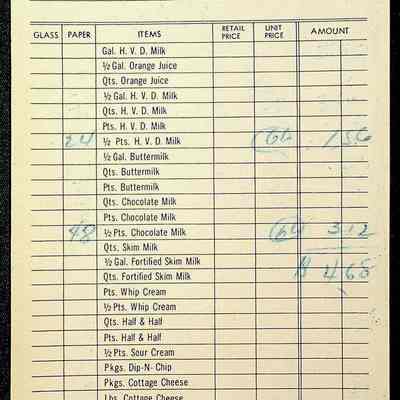 GLASS PAPER ITEMS RETAIL PRICE UNIT PRICE AMOUNT
Gal. H. V. D. Milk
½ Gal. Orange Juice
Qts. Orange Juice
½ Gal. H. V. D. Milk
Qts. H. V. D. Milk
Pts. H. V. D. Milk
24 ½ Pts. H. V. D. Milk 1 56
½ Gal. Buttermilk
Qts. Buttermilk
Pts. Buttermilk
Qts. Chocolate Milk
Pts. Chocolate Milk
48 ½ Pts. Chocolate Milk 3 12
Qts. Skim Milk
½ Gal. Fortified Skim Milk $ 4 68
Qts. Fortified Skim Milk
Pts. Whip Cream
½ Pts. Whip Cream
Qts. Half & Half
Pts. Half & Half
½ Pts. Sour Cream
Pkgs. Dip-N-Chip
Pkgs. Cottage Cheese
Lbs. Cottage Cheese